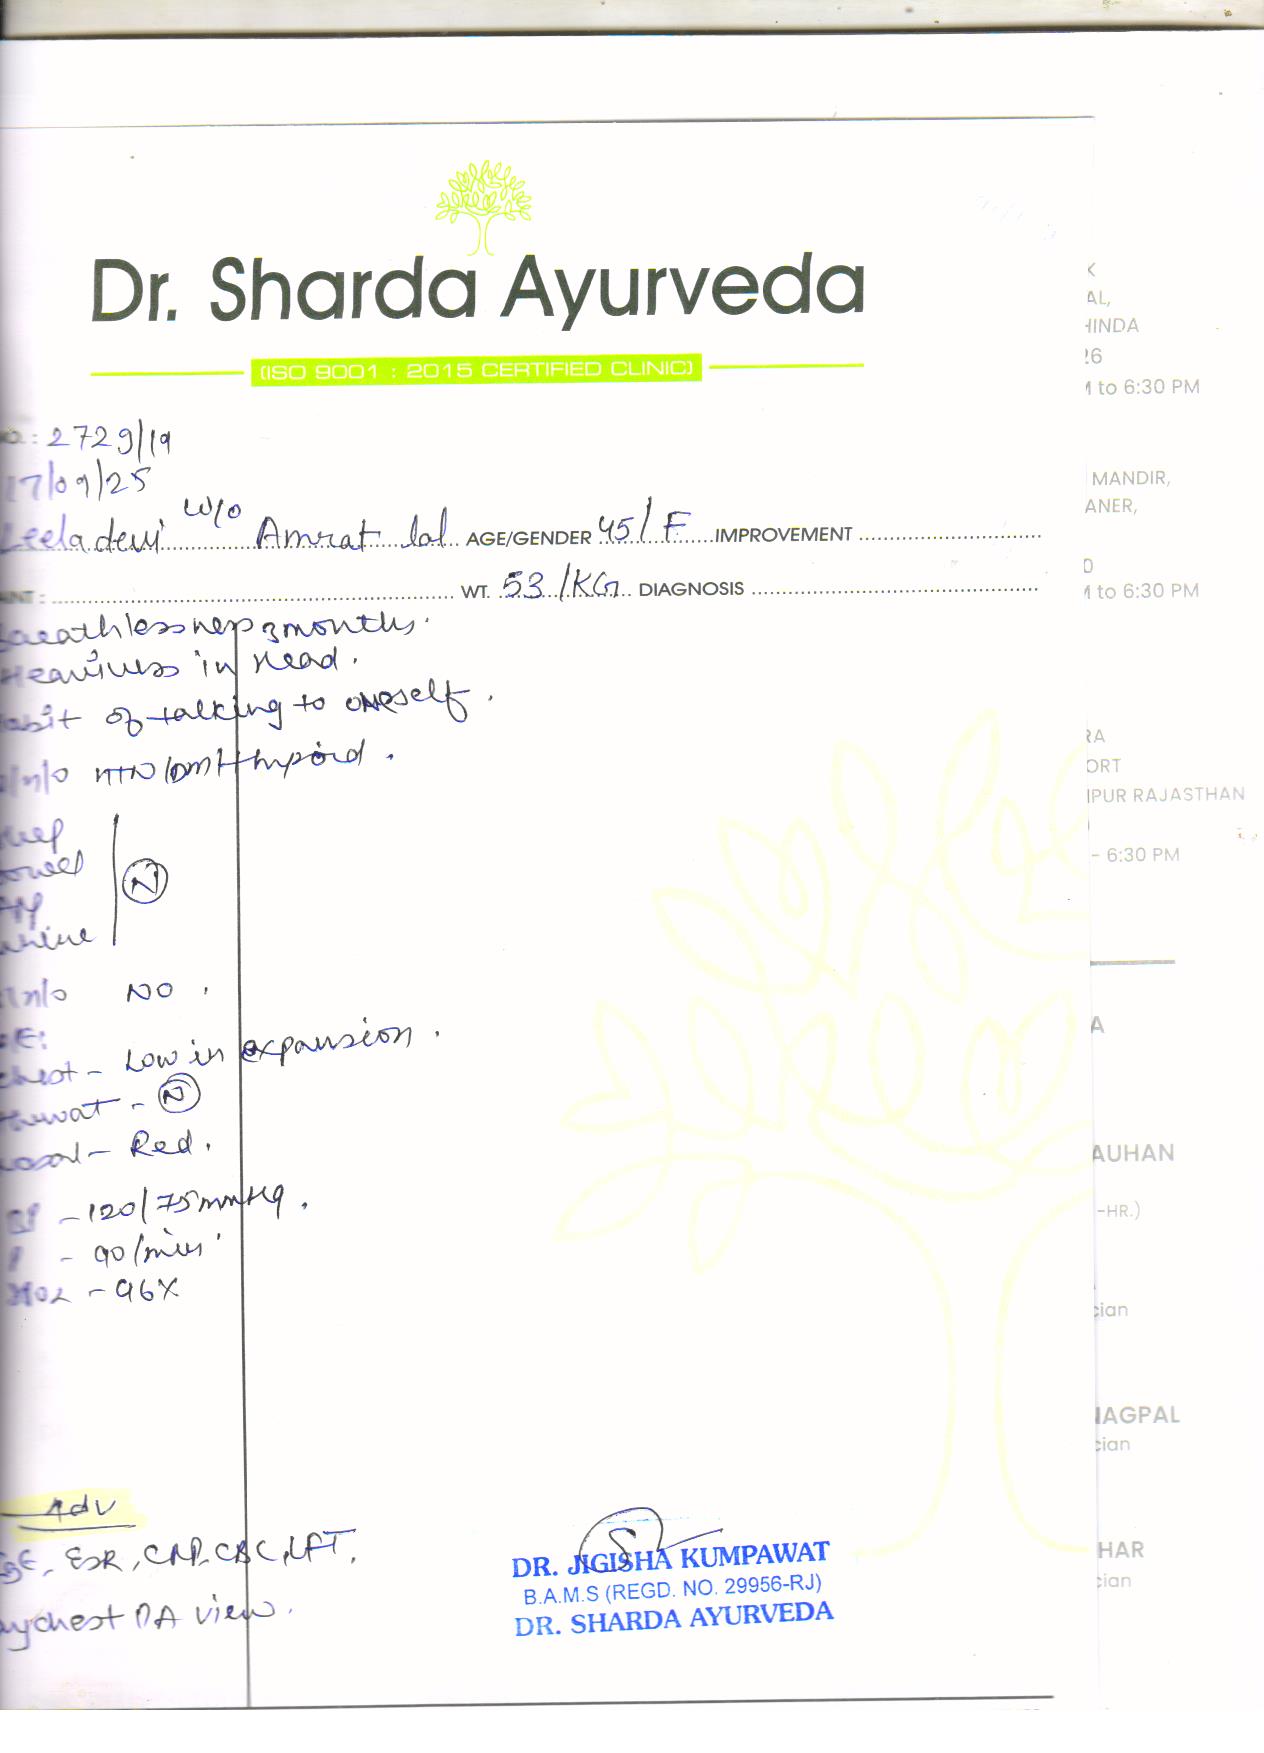 Dr. Sharda Ayurveda
(ISO 9001 : 2015 CERTIFIED CLINIC)
O. : 2729/19
17/09/25
Leela devi W/o Amrat lal AGE/GENDER 45/F IMPROVEMENT
AINT : WT. 53/KG DIAGNOSIS
Breathlessness 3 months.
Heaviness in head.
abit of talking to oneself.
H/o HTN/DM/Thyroid.
leep
owel
App
urine
N
H/o NO.
/E:
chest - Low in expansion.
Throat - N
nasal - Red.
BP - 120/75 mmHg.
P - 90/min
SPO2 - 96%
Adv
IgE, ESR, CRP, CBC, LFT,
ay chest PA view.
DR. JIGISHA KUMPAWAT
B.A.M.S (REGD. NO. 29956-RJ)
DR. SHARDA AYURVEDA
K
AL,
HINDA
26
M to 6:30 PM
MANDIR,
ANER,
0
M to 6:30 PM
RA
ORT
IPUR RAJASTHAN
- 6:30 PM
A
AUHAN
-HR.)
cian
NAGPAL
cian
HAR
cian